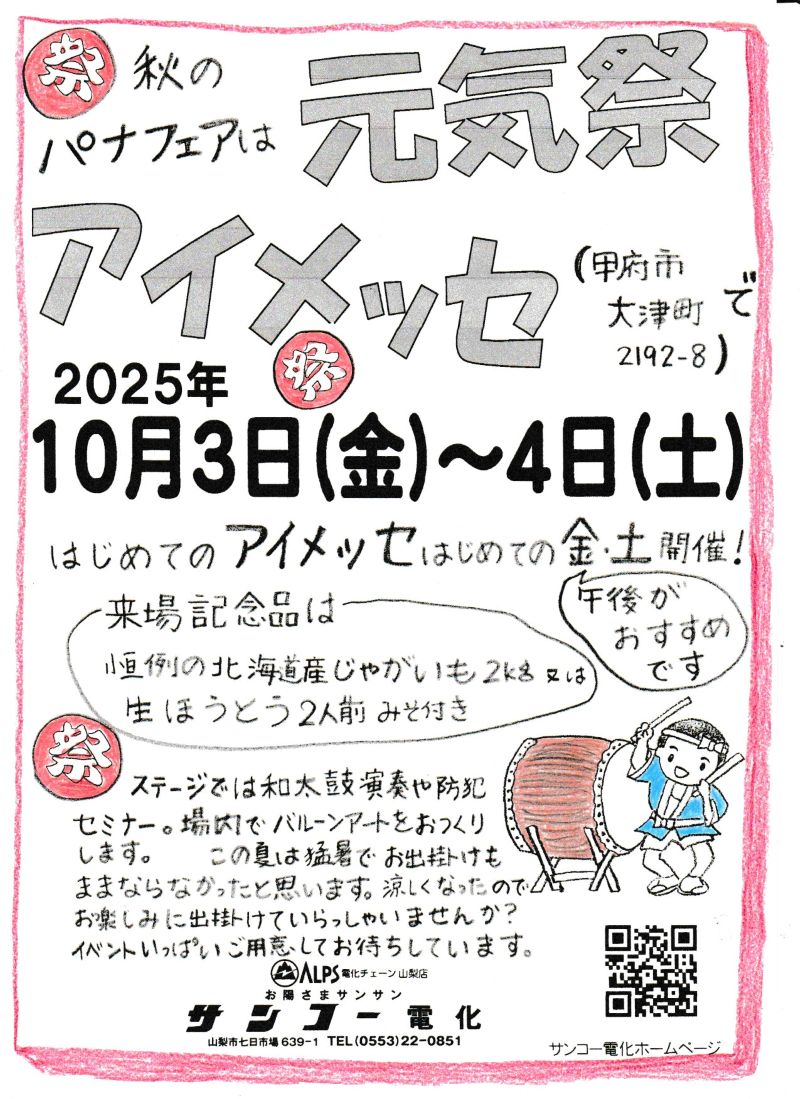 祭 秋の
パナフェアは
元気祭
アイメッセ
(甲府市
大津町
2192-8)
で
祭
2025年
10月3日(金)~4日(土)
はじめての アイメッセ はじめての 金・土 開催!
午後が
おすすめ
です
来場記念品は
恒例の北海道産じゃがいも2kg 又は
生ほうとう2人前 みそ付き
祭
ステージでは和太鼓演奏や防犯
セミナー。場内でバルーンアートをおつくり
します。 この夏は猛暑でお出掛けも
ままならなかったと思います。涼しくなったので
お楽しみに出掛けていらっしゃいませんか?
イベントいっぱいご用意してお待ちしています。
ALPS 電化チェーン 山梨店
お陽さまサンサン
サンコー電化
山梨市七日市場639-1 TEL(0553)22-0851
サンコー電化ホームページ